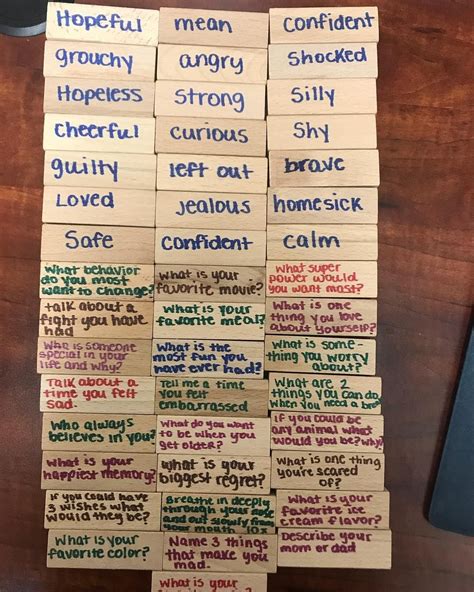 Hopeful
mean
confident
grouchy
angry
Shocked
Hopeless
Strong
Silly
cheerful
curious
Shy
guilty
left out
brave
Loved
jealous
homesick
Safe
confident
calm
What behavior
do you most
want to change?
What is your
favorite movie?
What super
power would
you want most?
talk about a
fight you have
had
What is your
favorite meal?
What is one
thing you love
about yourself?
Who is someone
special in your
life and why?
What is the
most fun you
have ever had?
What is some-
thing you worry
about?
Talk about a
time you felt
sad.
Tell me a time
you felt
embarrassed
What are 2
things you can do
when you need a
Who always
believes in you?
What do you want
to be when you
get older?
If you could be
any animal what
would you be? why?
What is your
happiest memory?
What is your
biggest regret?
What is one thing
you're scared
of?
If you could have
3 wishes what
would they be?
Breathe in deeply
through your nose
and out slowly from
your mouth 10x
What is your
favorite ice
cream flavor?
What is your
favorite color?
Name 3 things
that make you
mad.
Describe your
mom or dad
What is your